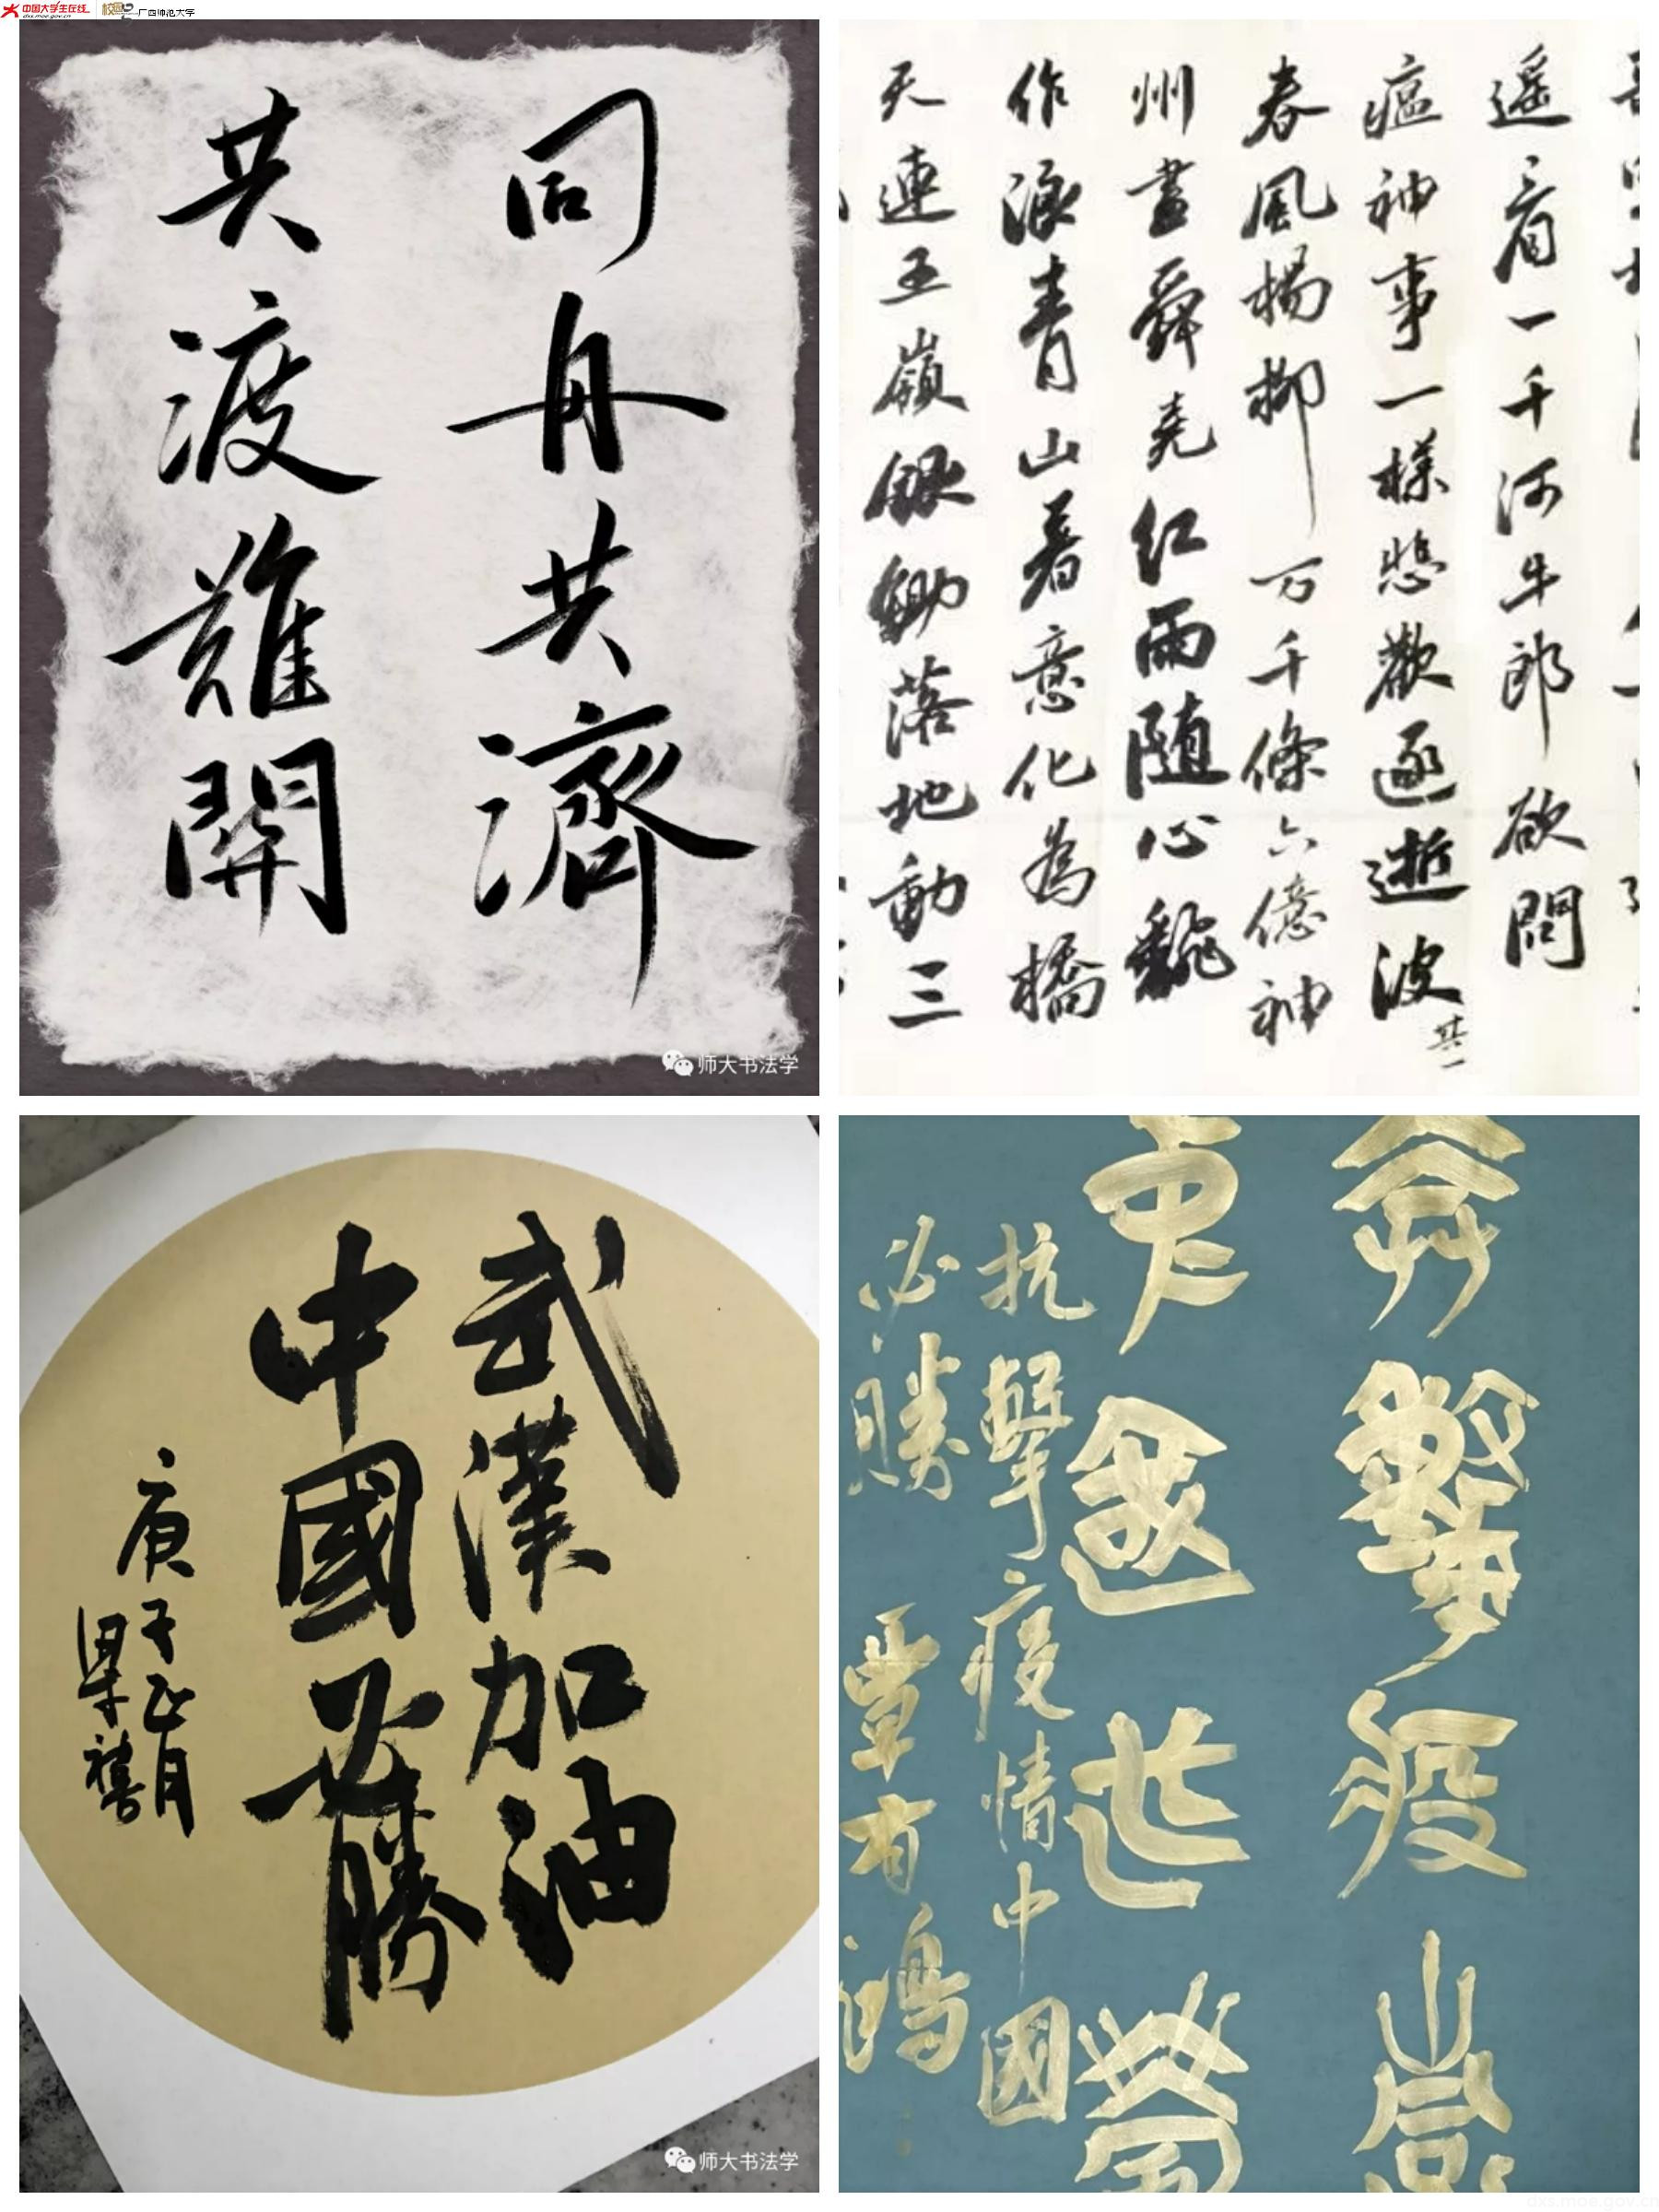 中国大学生在线
dxs.moe.gov.cn
校园号
广西师范大学
同舟共濟
共渡難關
师大书法学
遥看一千河牛郎欲問
瘟神事一樣悲歡逐逝波
其一
春風楊柳万千條六億神
州盡舜堯紅雨随心翻
作浪青山著意化為橋
天連五嶺銀鋤落地動三
武漢加油
中國必勝
庚子正月
梁禧
师大书法学
擊疫
抗擊疫情中国
必勝 覃有鴻